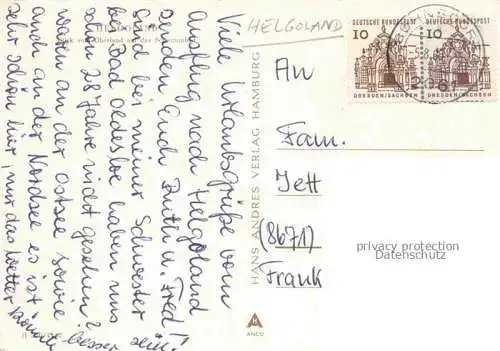 HELGOLAND
HELGOLAND
Viele Urlaubsgrüße vom
Ausflug nach Helgoland
senden Euch Ruth u. Fred!
Sind bei meiner Schwester
bei Bad Oldesloe haben uns
schon 28 Jahre nicht gesehen?
waren an der Ostsee sowie
auch an der Nordsee es ist
sehr schön hier, nur das Wetter könnte
besser sein.
HANS ANDRES VERLAG HAMBURG
ANCO
DEUTSCHE BUNDESPOST
10
DRESDEN/SACHSEN
DEUTSCHE BUNDESPOST
10
DRESDEN/SACHSEN
An
Fam.
Jett
(8671)
Frank
privacy protection
Datenschutz